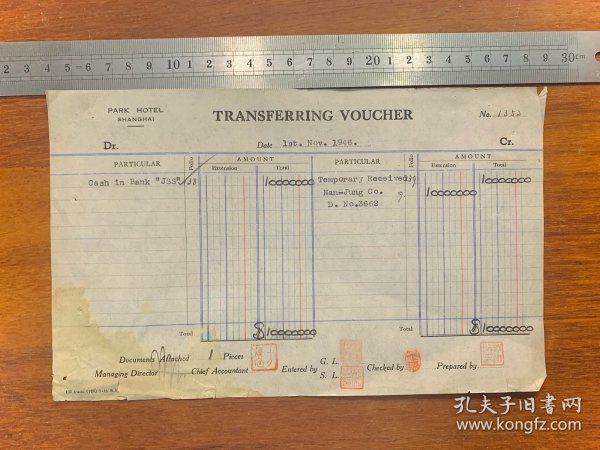 2 3 4 5 6 7 8 9 10 1 2 3 4 5 6 7 8 9 20 1 2 3 4 5 6 7 8 9 30 cm
PARK HOTEL
SHANGHAI
TRANSFERRING VOUCHER
No. 1352
Dr.
Date 1st. Nov. 1946.
Cr.
PARTICULAR Folio AMOUNT PARTICULAR Folio AMOUNT
Extension Total Extension Total
Cash in Bank "JSS" 10000000 Temporary Received 10000000
Nan-Jung Co. 10000000
D. No.3662
Total $10000000 Total $10000000
Documents Attached 1 Pieces
Managing Director Chief Accountant Entered by G. L. S. L. Checked by Prepared by
孔夫子旧书网
www.kongfz.com